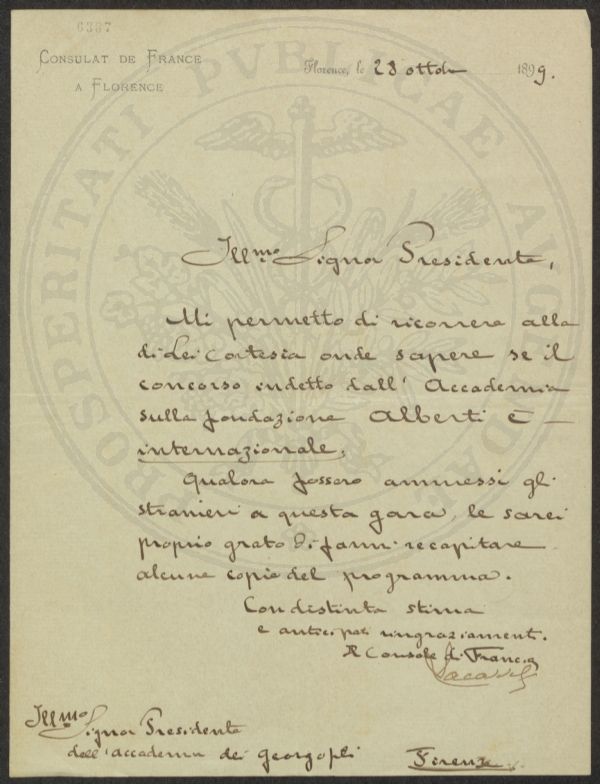 6387
CONSULAT DE FRANCE
A FLORENCE
Florence, le 28 ottobre 1899.
PROSPERITATI PVBLICAE AVGENDAE
Ill.mo Signor Presidente,
Mi permetto di ricorrere alla
di Lei cortesia onde sapere se il
concorso indetto dall' Accademia
sulla fondazione Alberti è
internazionale.
Qualora fossero ammessi gli
stranieri a questa gara, le sarei
proprio grato di farmi recapitare
alcune copie del programma.
Con distinta stima
e anticipati ringraziamenti.
Il Console di Francia
Ill.mo
Signor Presidente
dell'accademia dei georgofili
Firenze